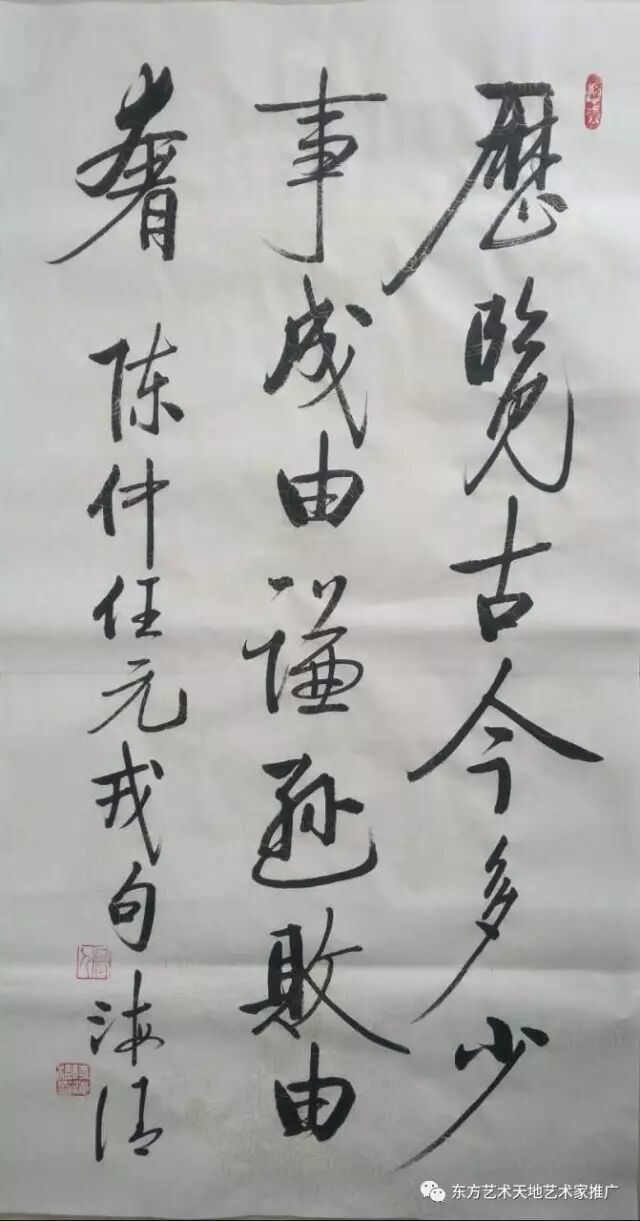 歷覽古今多少
事成由謙遜敗由
奢 陈仲任元戎句 海清
东方艺术天地艺术家推广